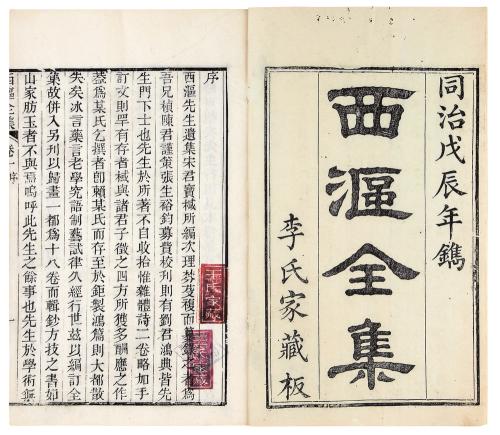 同治戊辰年鐫
西漚全集
李氏家藏板
序
西漚先生遺集宋君賣棫所編次理棼芟複而
吾兄楨陳君謹策張生裕鈞募費校刋則有劉君鴻典皆先
生門下士也先生於所著不自收拾惟雜體詩二卷略加手
訂文則罕有存者棫與諸君子徵之四方所獲多酬應之作
葢爲某氏乞撰者卽賴某氏而存至於鉅製鴻篇則大都散
失矣冰言藥言老學究語制藝試律久經行世兹以編訂全
集故併入另刋以歸畫一都爲十八卷而輯鈔方技之書如
山家肪玉者不與焉嗚呼此先生之餘事也先生於學術
西漚全集 卷一序 一